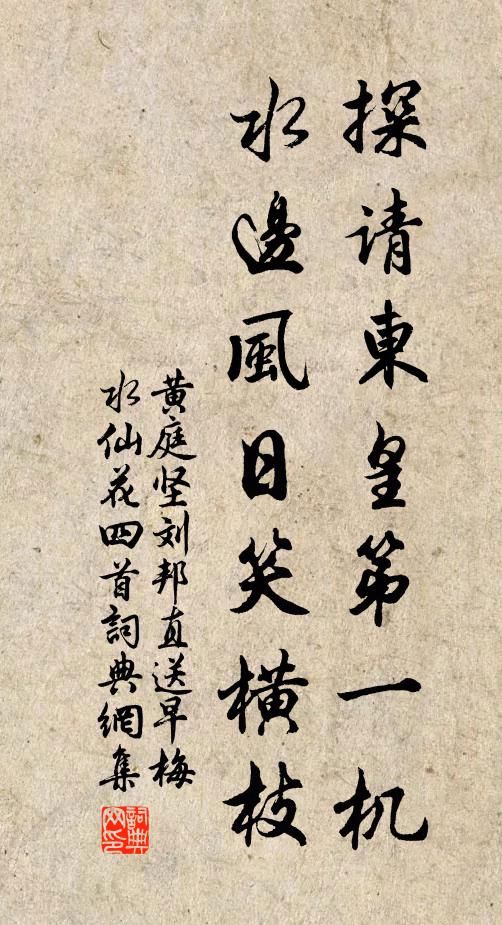 探请東皇第一机
水邊風日笑橫枝
黄庭坚刘邦直送早梅
水仙花四首詞典網集
詞典网印